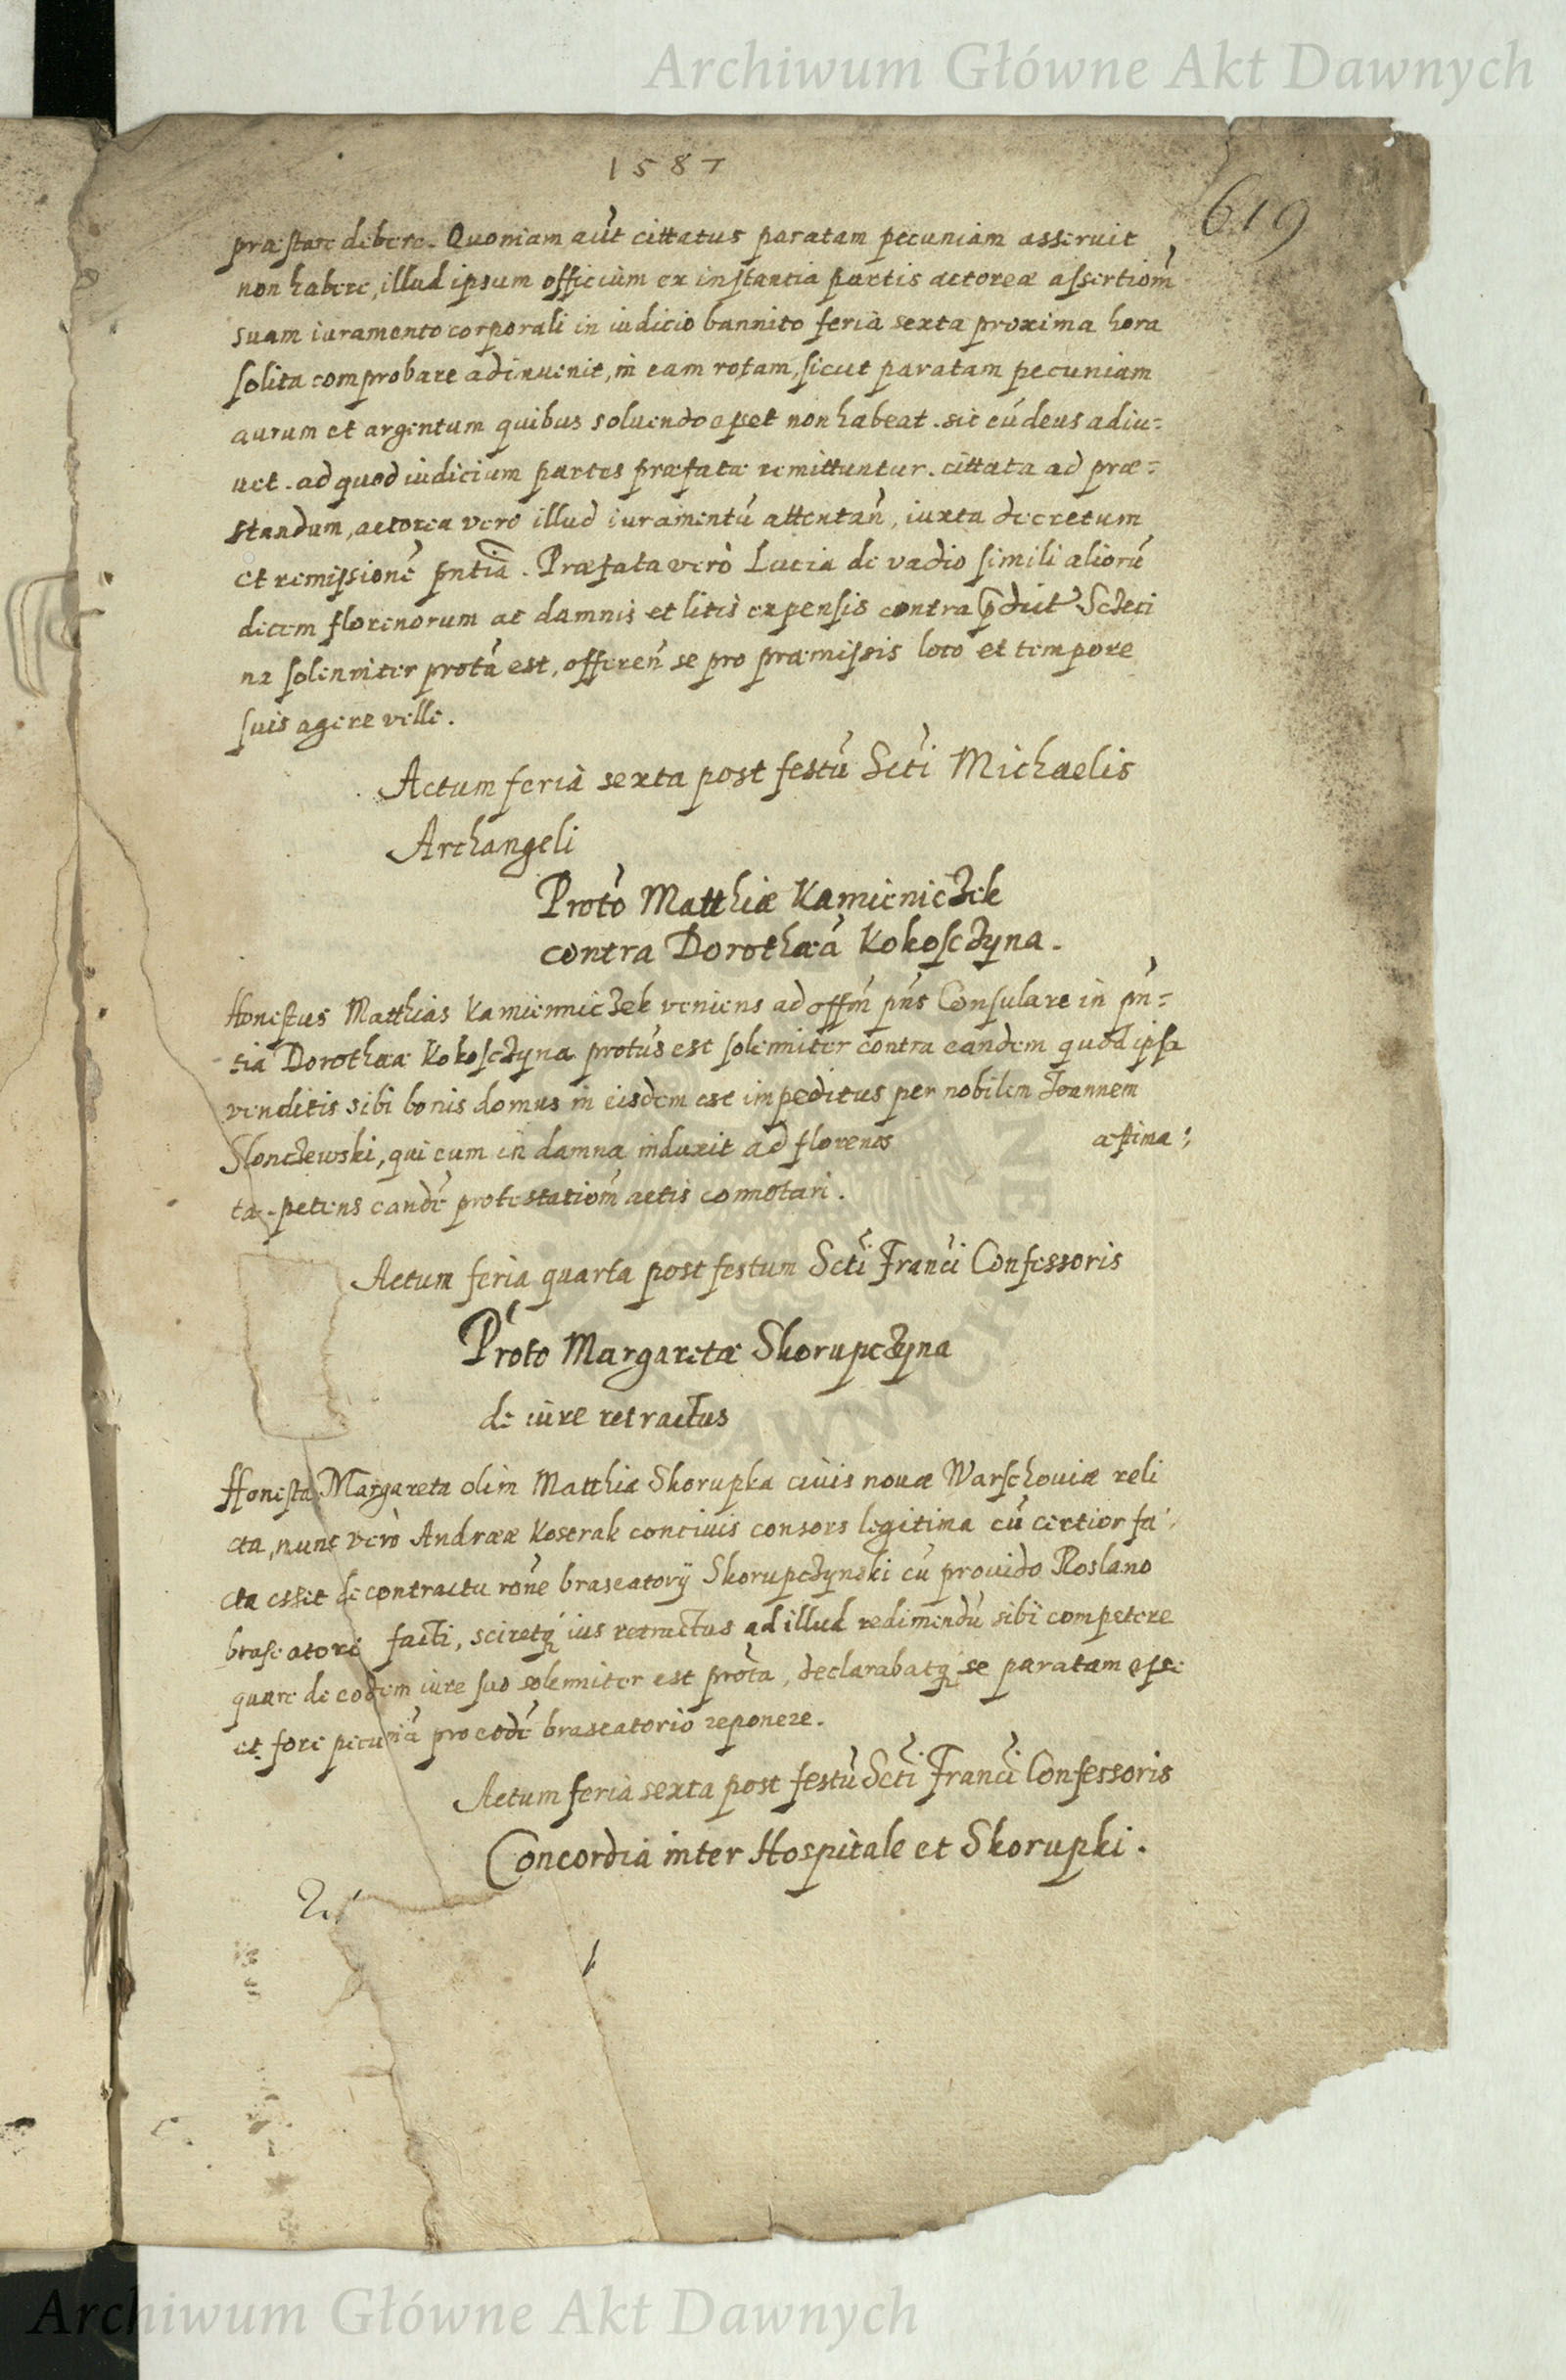 Archiwum Główne Akt Dawnych
1587
619
præstare debere. Quoniam aũt cittatus paratam pecuniam asseruit
non habere, illud ipsum officium ex instantia partis actoreæ assertiom̃
suam iuramento corporali in iudicio bannito feria sexta proxima hora
solita comprobare adinuenit, in eam rotam, sicut paratam pecuniam
aurum et argentum quibus soluendo esset non habeat. sic eũ deus adiu=
uet. ad quod iudicium partes præfatæ remittuntur. cittata ad præ=
standum, actorea vero illud iuramentũ attentañ, iuxta decretum
et remissionẽ pñtiã. Præfata verò Lucia de vadio simili aliorũ
decem florenorum ac damnis et litis expensis contra Sczeci
na solenniter protã est, offereñ se pro præmissis loco et tempore
suis agere velle.
Actum feria sexta post festũ Scti Michaelis
Archangeli
Proto Matthiæ Kamieniczek
contra Dorothæã Kokosczyna.
Honestus Matthias Kamienniczek veniens ad offm̃ pñs Consulare in pñ=
tia Dorothææ Kokosczyna protũs est solenniter contra eandem quod ipse
venditis sibi bonis domus in eisdem est impeditus per nobilem Joannem
Slonczewski, qui eum in damna induxit ad florenos æstima:
ta. petens eandẽ protestatiom̃ actis connotari.
Actum feria quarta post festum Scti Franci Confessoris
Proto Margaretæ Skorupczyna
de iure retractus
Honesta Margareta olim Matthiæ Skorupka ciuis nouæ Warschouiæ reli
cta, nunc verò Andreæ Koserak conciuis consors legitima cũ certior fa
cta esset de contractu roñe braseatorÿ Skorupczynski cũ prouido Roslano
braseatore facti, sciretq ius retractus ad illud redimendũ sibi competere
quare de eodem iure suo solenniter est prota, declarabatq se paratam esse
et fore pecuniã pro eodẽ braseatorio reponere.
Actum feria sexta post festũ Scti Franci Confessoris
Concordia inter Hospitale et Skorupki.
Archiwum Główne Akt Dawnych